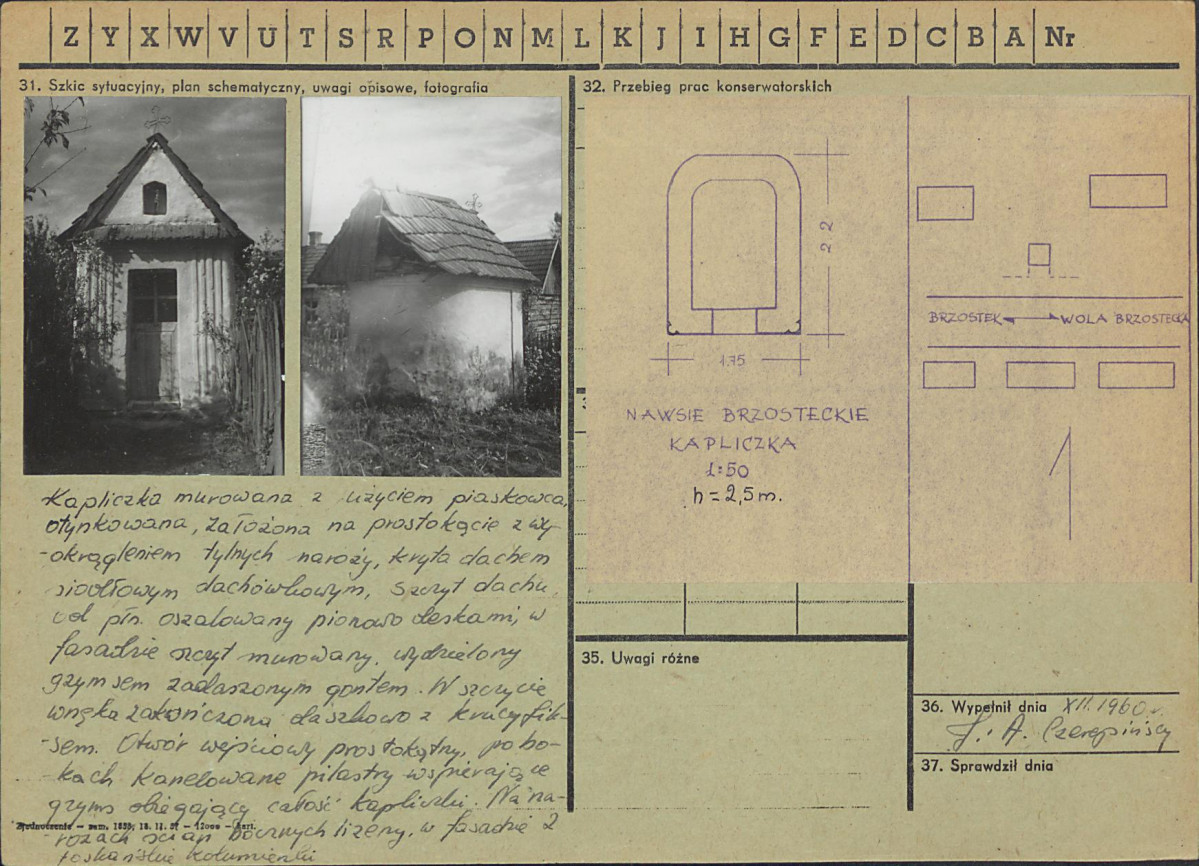 Z Y X W V U T S R P O N M L K J I H G F E D C B A Nr
31. Szkic sytuacyjny, plan schematyczny, uwagi opisowe, fotografia
Kapliczka murowana z użyciem piaskowca,
otynkowana, założona na prostokącie z wy-
-okrągleniem tylnych naroży, kryta dachem
siodłowym dachówkowym, szczyt dachu
od płn. oszalowany pionowo deskami, w
fasadzie szczyt murowany, wydzielony
gzymsem zadaszonym gontem. W szczycie
wnęka zakończona daszkowo z krucyfik-
-sem. Otwór wejściowy prostokątny, po bo-
-kach kanelowane pilastry wspierające
gzyms obiegający całość kapliczki. Na na-
-rożach ścian bocznych lizeny, w fasadzie 2
toskańskie kolumienki
Zjednoczenie – zam. 1855, 18. II. 57 – 12000 –
32. Przebieg prac konserwatorskich
2 2
1.75
NAWSIE BRZOSTECKIE
KAPLICZKA
1:50
h = 2,5 m.
BRZOSTEK WOLA BRZOSTECKA
35. Uwagi różne
36. Wypełnił dnia XII. 1960 r.
J. i A. Czerepińscy
37. Sprawdził dnia